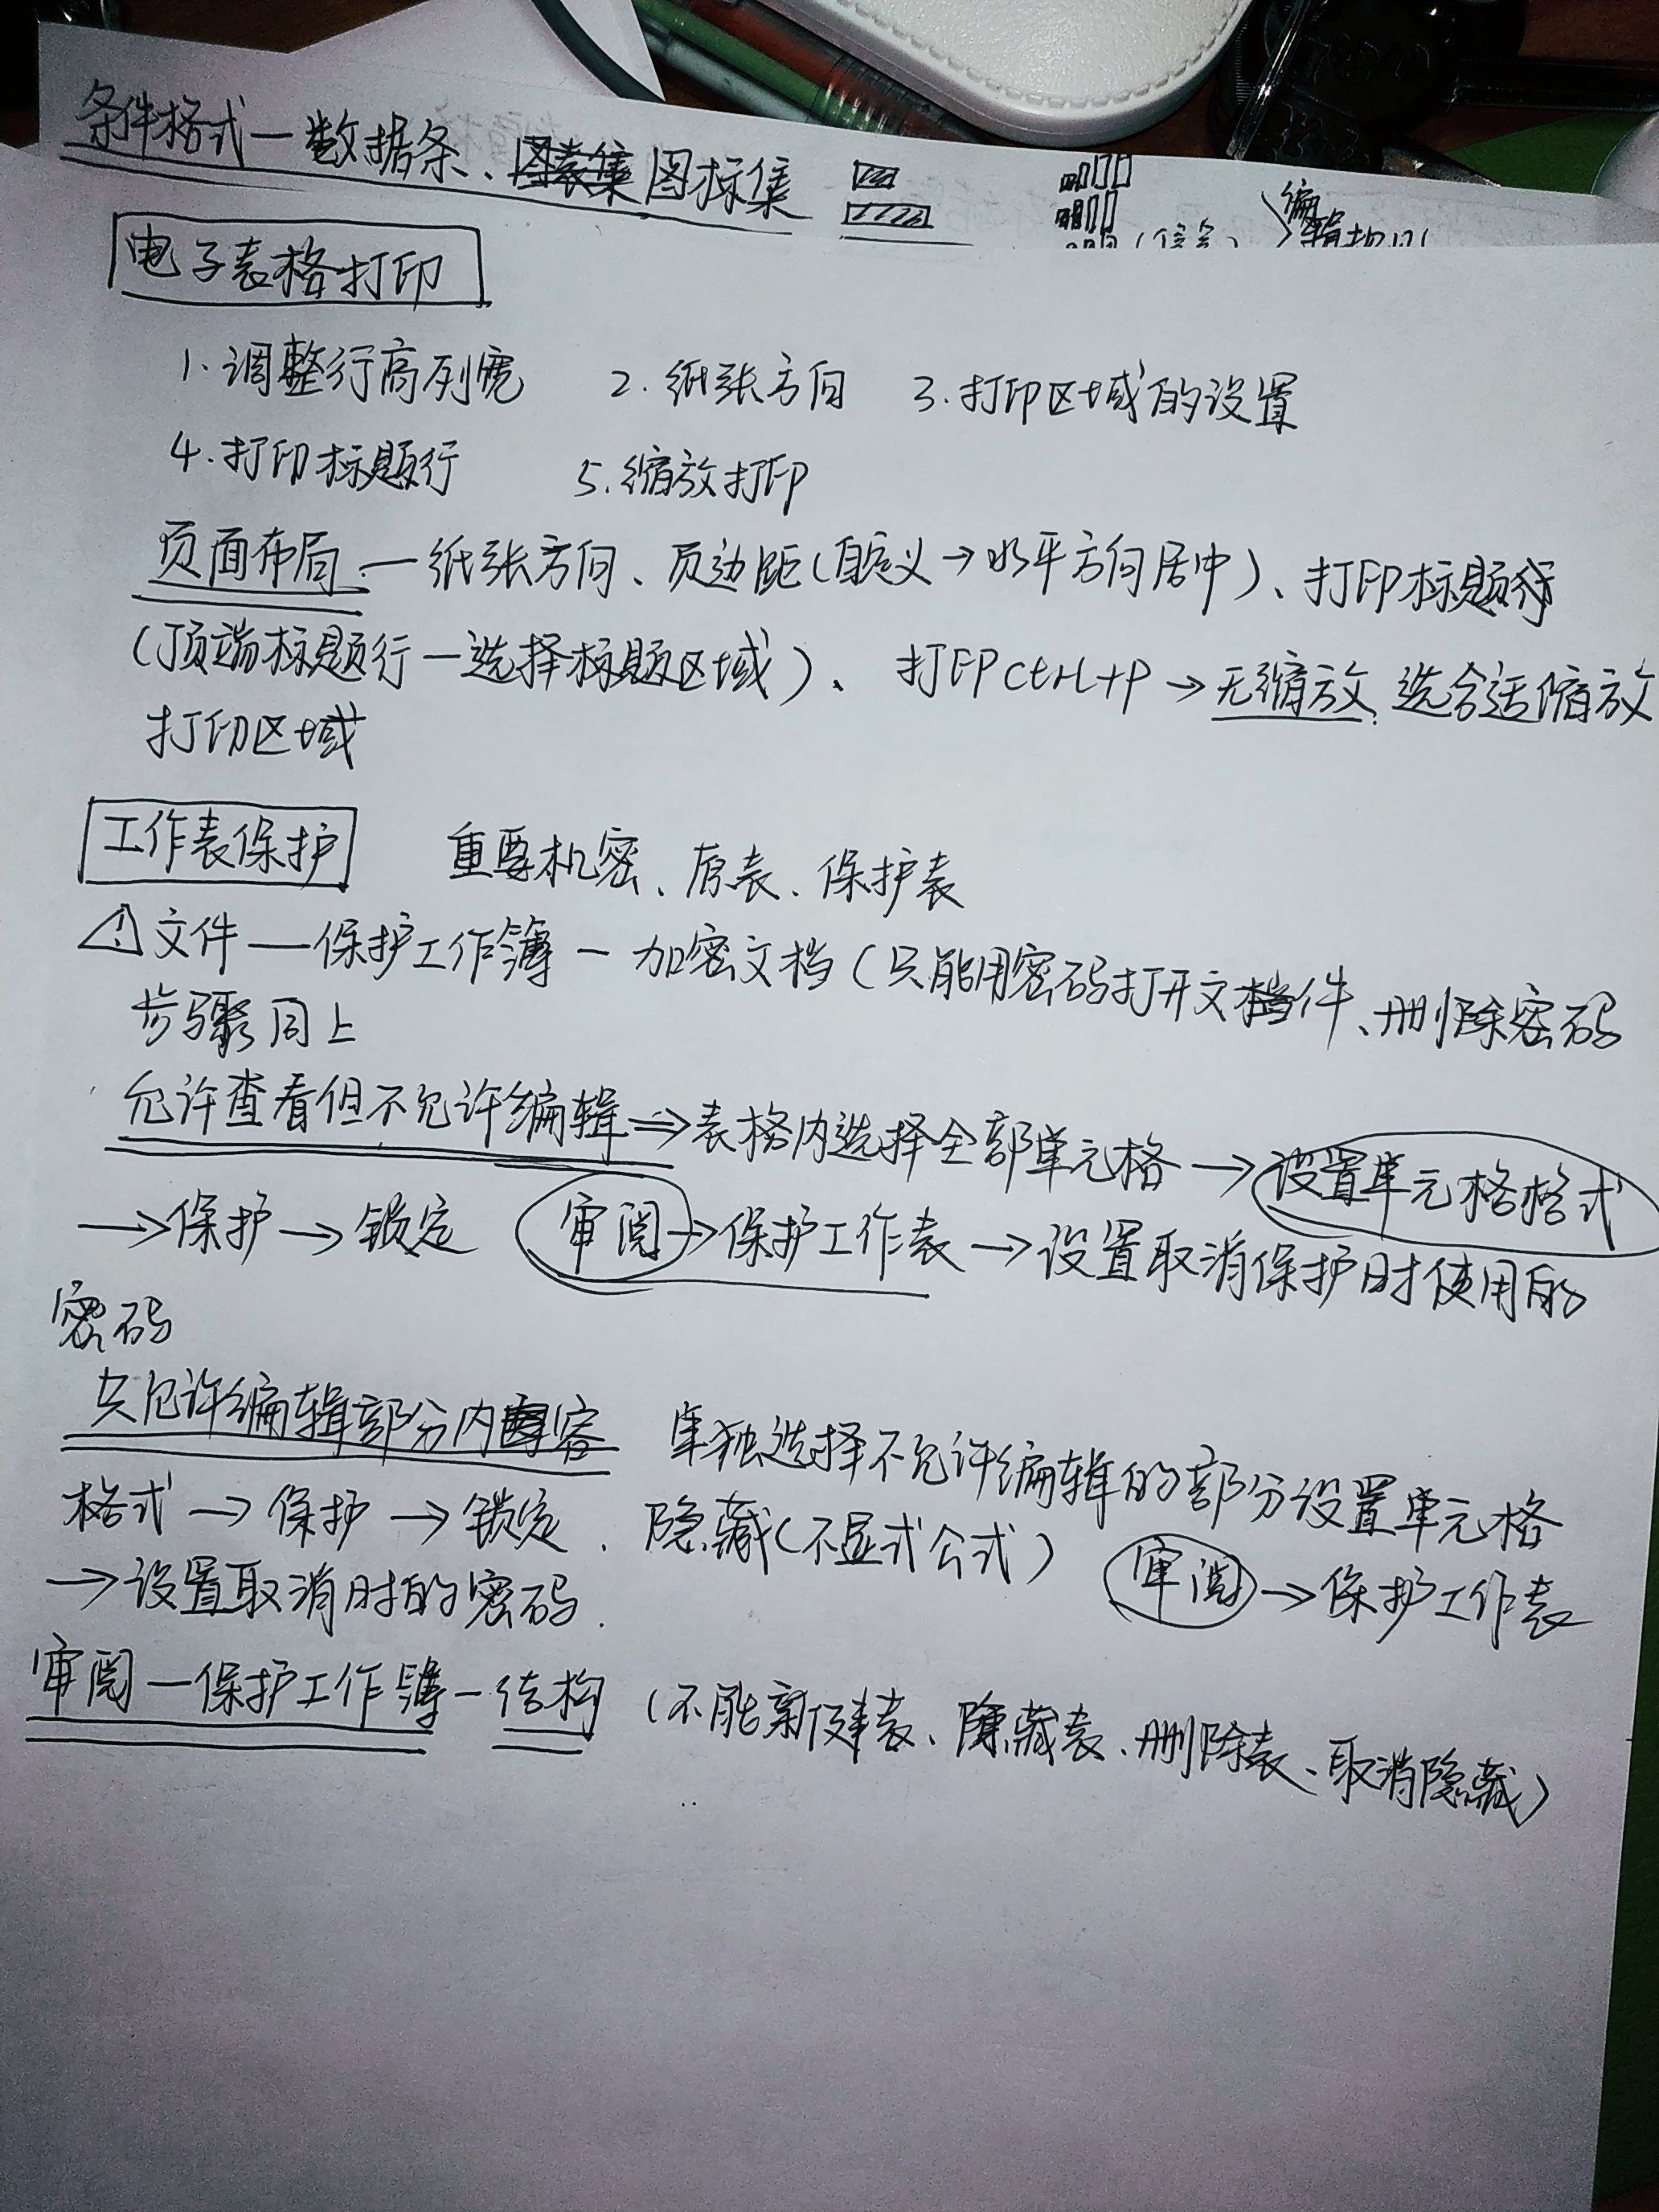 条件格式一数据条、图标集
编
辑规则
电子表格打印
1.调整行高列宽 2.纸张方向 3.打印区域的设置
4.打印标题行 5.缩放打印
页面布局一纸张方向、页边距(自定义→水平方向居中)、打印标题行
(顶端标题行一选择标题区域)、打印ctrl+P→无缩放,选合适缩放
打印区域
工作表保护 重要机密、原表、保护表
⚠文件—保护工作簿-加密文档(只能用密码打开文件、删除密码
步骤同上
允许查看但不允许编辑⇒表格内选择全部单元格→设置单元格格式
→保护→锁定 审阅→保护工作表→设置取消保护时使用的
密码
只允许编辑部分内容 单独选择不允许编辑的部分设置单元格
格式→保护→锁定、隐藏(不显式公式) 审阅→保护工作表
→设置取消时的密码.
审阅—保护工作簿-结构(不能新建表、隐藏表、删除表、取消隐藏)